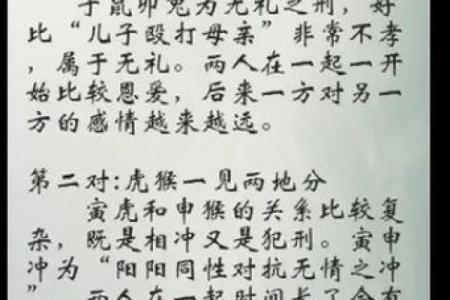 子鼠卯兔为无礼之刑，好
比“儿子殴打母亲”非常不孝
，属于无礼。两人在一起一开
始比较恩爱，后来一方对另一
方的感情越来越远。
第二对：虎猴一见两地分
寅虎和申猴的关系比较复
杂，既是相冲又是犯刑。寅申
冲为“阳阳同性对抗无情之冲
”，两人在一起时间长了会有